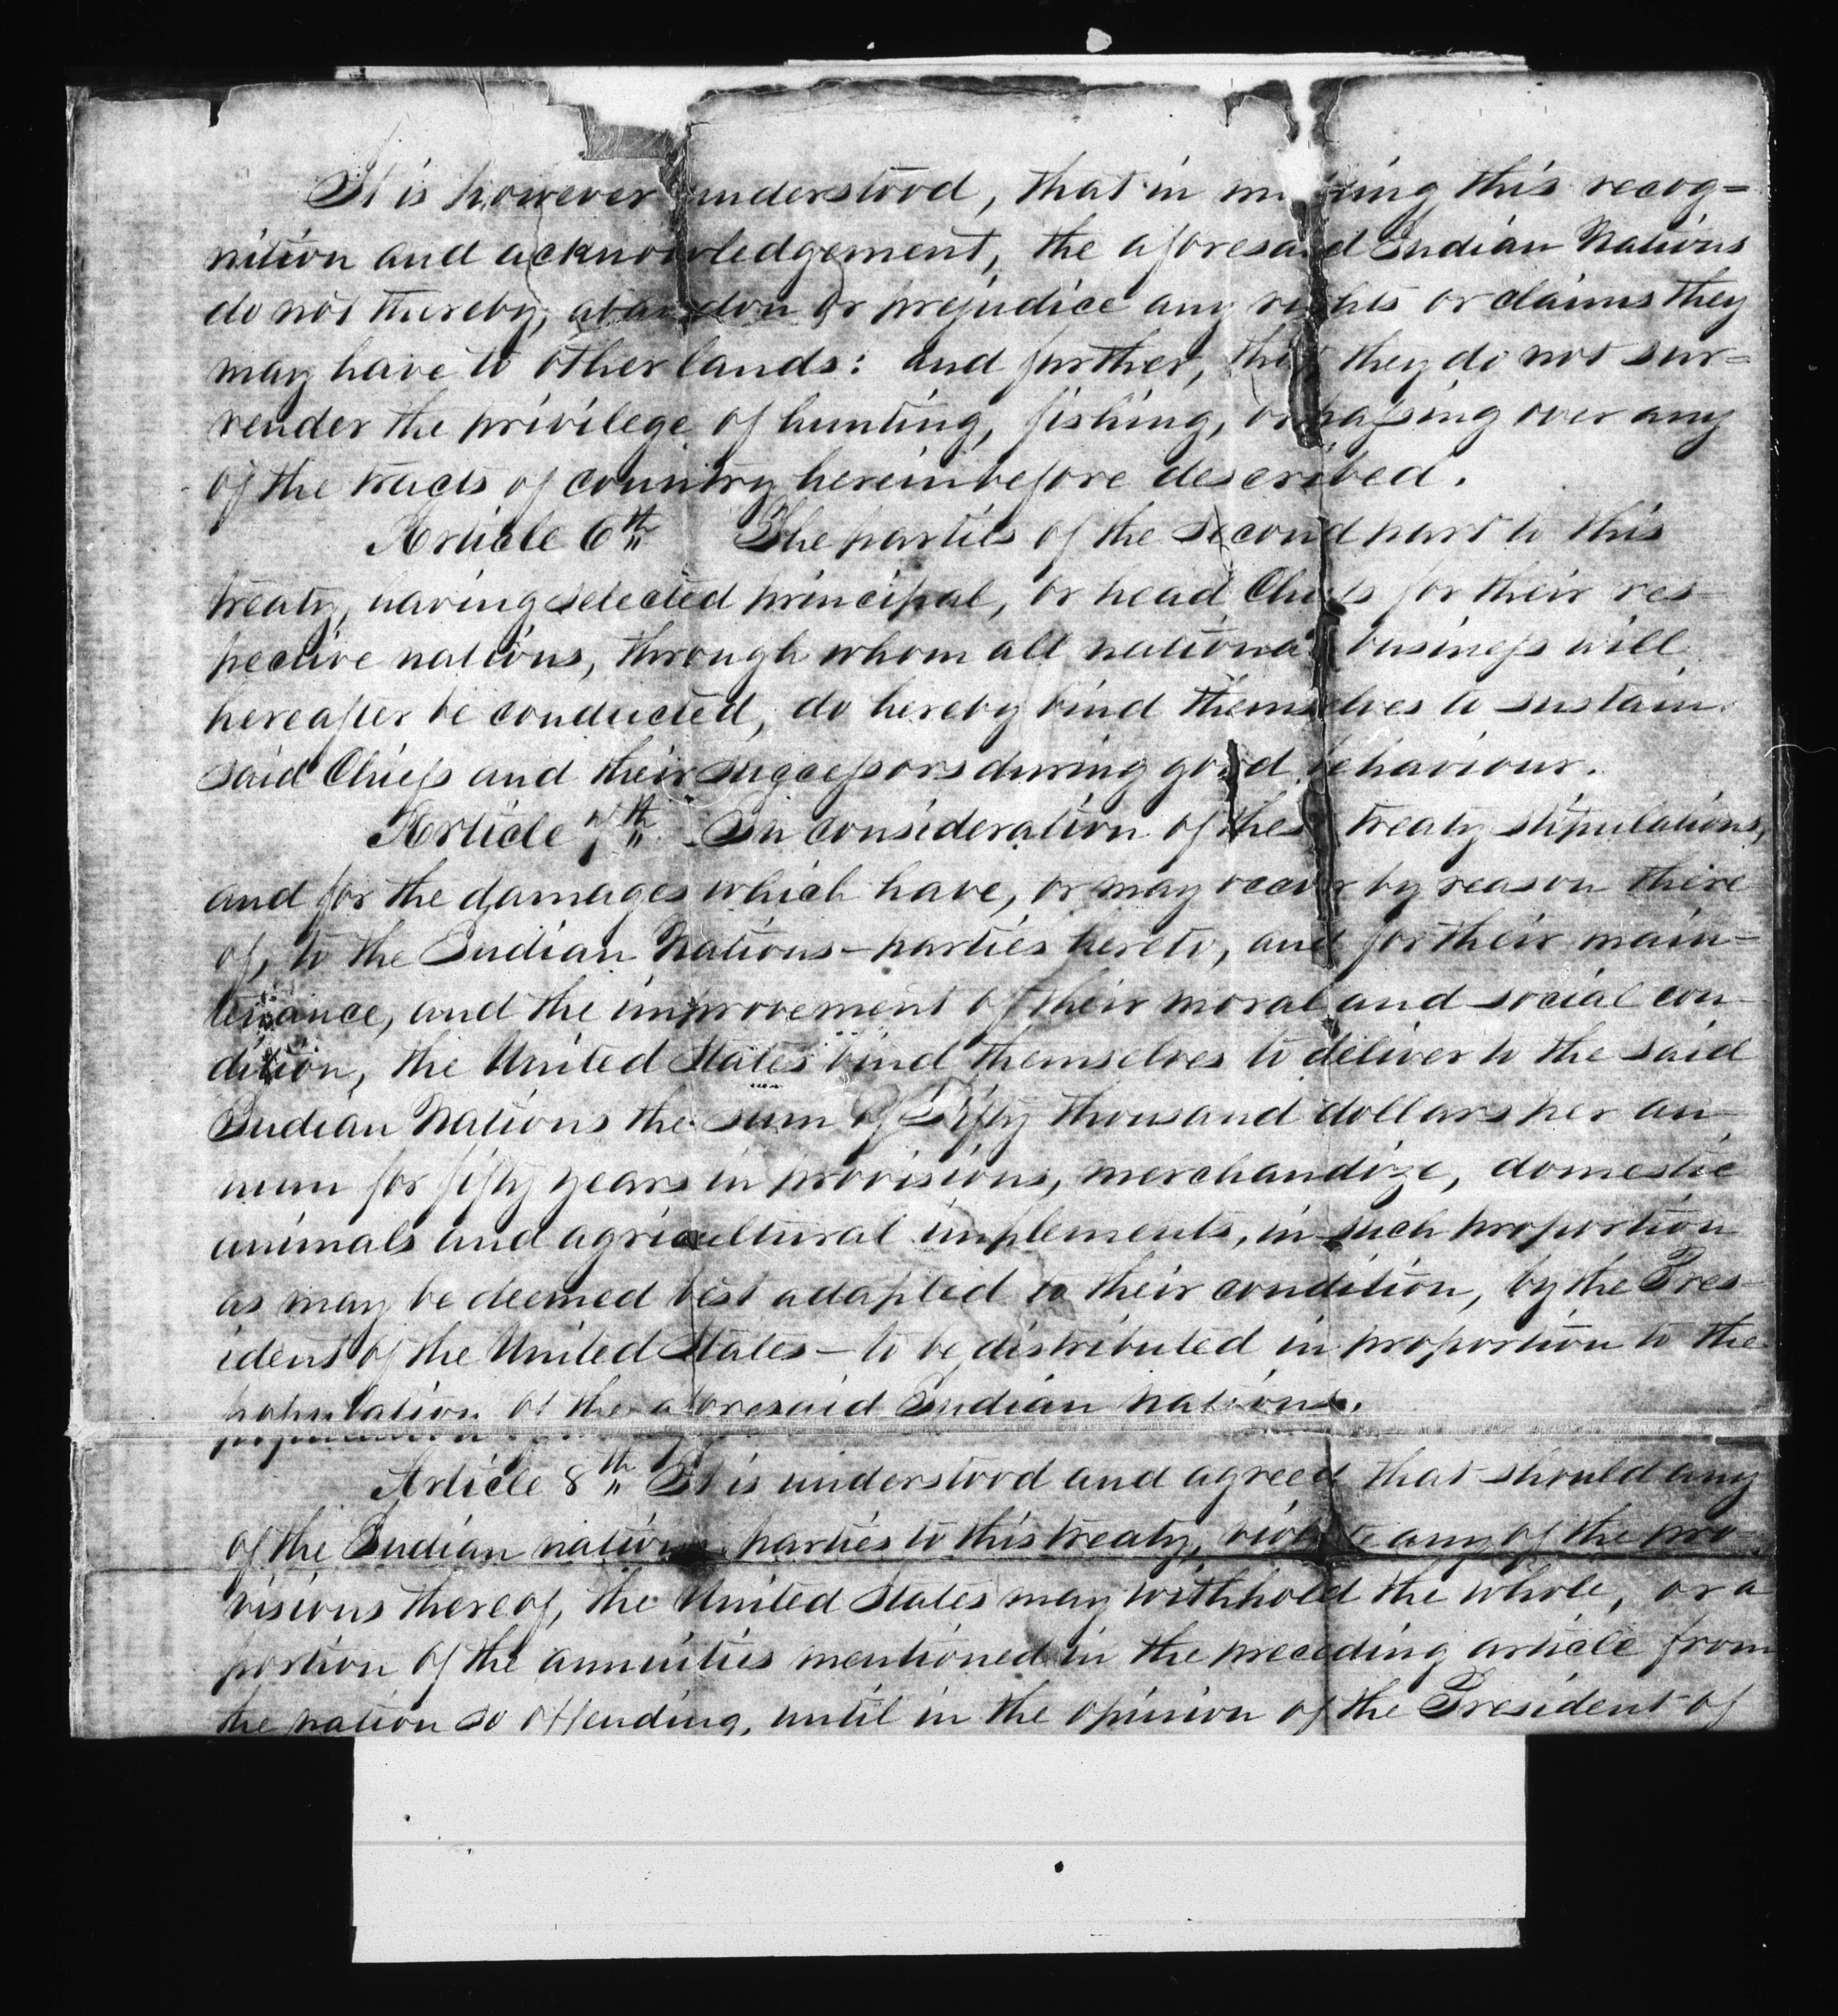 It is however understood, that in making this recog=
nition and acknowledgement, the aforesaid Indian Nations
do not thereby, abandon or prejudice any rights or claims they
may have to other lands: and further, that they do not sur=
render the privilege of hunting, fishing, or passing over any
of the tracts of country hereinbefore described.
Article 6th The parties of the second part to this
treaty, having selected principal, or head Chiefs for their res-
pective nations, through whom all national business will
hereafter be conducted, do hereby bind themselves to sustain
said Chiefs and their successors during good behaviour.
Article 7th In consideration of these treaty stipulations,
and for the damages which have, or may occur by reason there
of, to the Indian Nations – parties hereto, and for their main-
tenance, and the improvement of their moral and social con-
dition, the United States bind themselves to deliver to the said
Indian Nations the sum of Fifty thousand dollars per an-
num for fifty years in provisions, merchandize, domestic
animals and agricultural implements, in such proportion
as may be deemed best adapted to their condition, by the Pres-
ident of the United States – to be distributed in proportion to the
population of the aforesaid Indian nations.
Article 8th It is understood and agreed that should any
of the Indian nations parties to this treaty, violate any of the pro-
visions thereof, the United States may withhold the whole, or a
portion of the annuities mentioned in the preceding article from
the nation so offending, until in the opinion of the President of